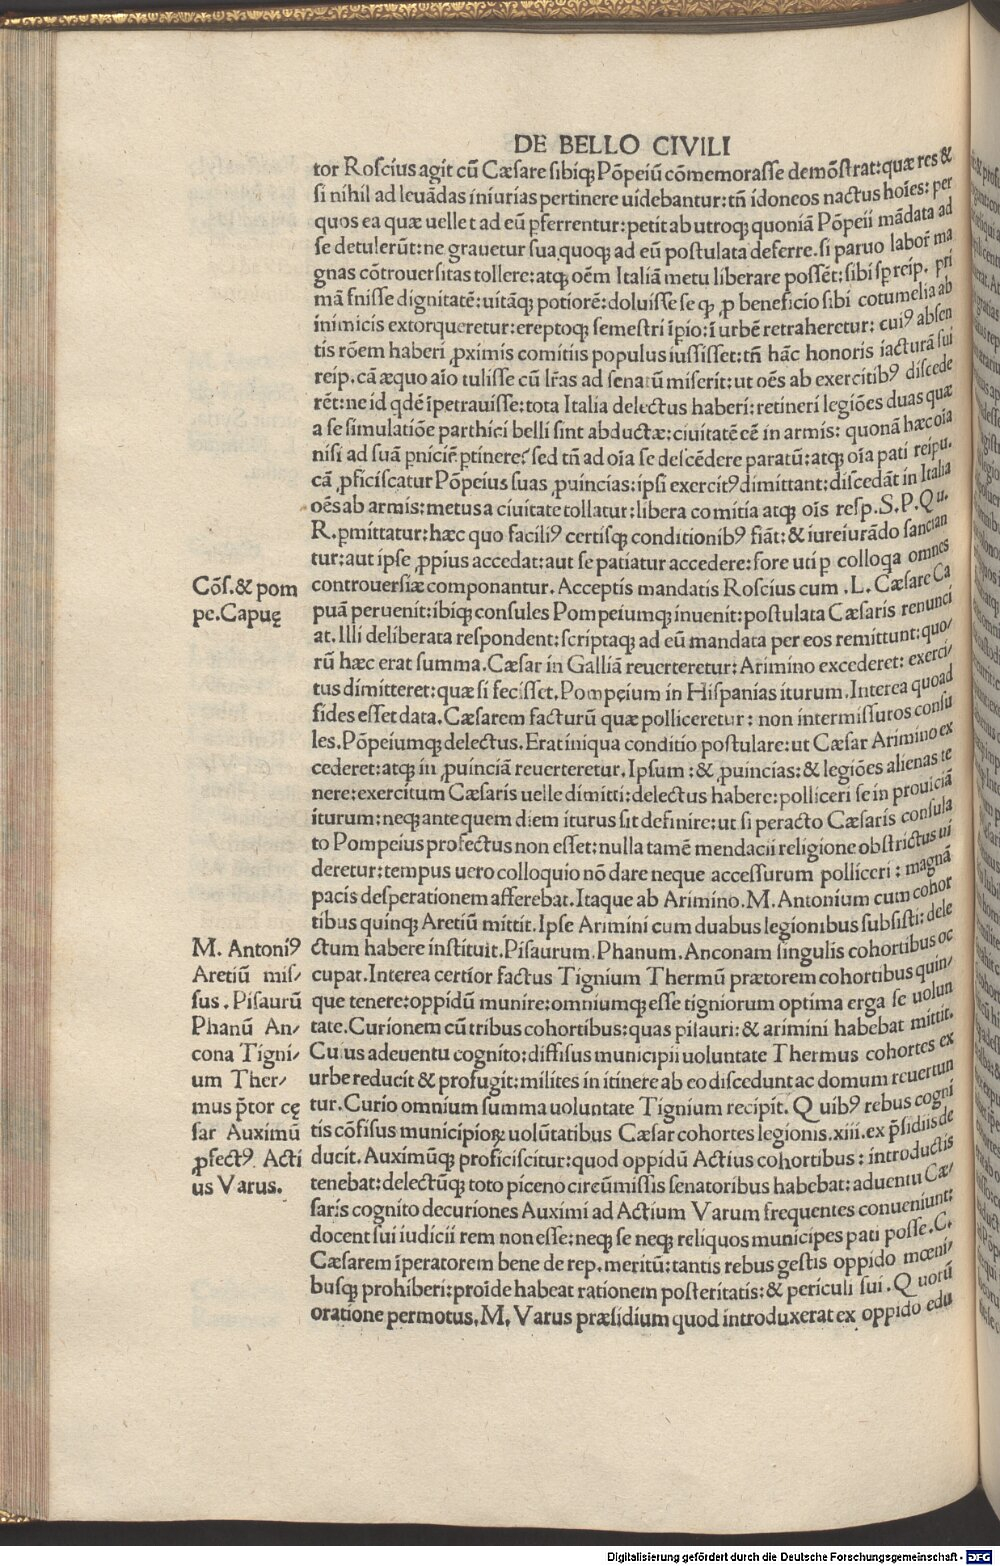 DE BELLO CIVILI
tor Roſcius agit cū Cæſare ſibiqꝫ Pōpeiū cōmemoraſſe demōſtrat:quæ res &
ſi nihil ad leuādas iniurias pertinere uidebantur:tñ idoneos nactus hoīes: per
quos ea quæ uellet ad eū ꝑferrentur:petit ab utroqꝫ quoniā Pōpeii mādata ad
ſe detulerūt:ne grauetur ſua quoqꝫ ad eū poſtulata deferre.ſi paruo labor̄ ma
gnas cōtrouerſitas tollere:atqꝫ oēm Italiā metu liberare poſſēt:ſibi ſꝑ reip. pri
mā fniſſe dignitatē:uitāqꝫ potiorē:doluiſſe ſe qꝫ ꝓ beneficio ſibi cotumelia ab
inimicis extorqueretur:ereptoqꝫ ſemeſtri īpio:ī urbē retraheretur: cuiꝰ abſen
tis rōem haberi ꝓximis comitiis populus iuſſiſſet:tñ hāc honoris iacturā ſui
reip.cā æquo aīo tuliſſe cū lr̄as ad ſenatū miſerit:ut oēs ab exercitibꝰ diſcede
rēt:ne id qdē īpetrauiſſe:tota Italia delectus haberi:retineri legiōes duas quæ
a ſe ſimulatiōe parthici belli ſint abductæ:ciuitatē eē in armis: quonā hæc oīa
niſi ad ſuā ꝑniciē ꝑtinere?ſed tñ ad oīa ſe deſcēdere paratū:atqꝫ oīa pati reipu.
cā ꝓficiſcatur Pōpeius ſuas ꝓuincias:ipſi exercitꝰ dimittant:diſcedāt in Italia
oēs ab armis:metus a ciuitate tollatur:libera comitia atqꝫ oīs reſp.S.P.Qu.
R.ꝑmittatur:hæc quo faciliꝰ certiſqꝫ conditionibꝰ fiāt:& iureiurādo ſancian
tur:aut ipſe ꝓpius accedat:aut ſe patiatur accedere:fore uti ꝑ colloqa omnes
controuerſiæ componantur. Acceptis mandatis Roſcius cum .L. Cæſare Ca
puā peruenit:ibiqꝫ conſules Pompeiumqꝫ inuenit:poſtulata Cæſaris renunci
at. Illi deliberata reſpondent:ſcriptaqꝫ ad eū mandata per eos remittunt:quo/
rū hæc erat ſumma.Cæſar in Galliā reuerteretur:Arimino excederet: exerci/
tus dimitteret:quæ ſi feciſſet.Pompeium in Hiſpanias iturum.Interea quoad
fides eſſet data.Cæſarem facturū quæ polliceretur: non intermiſſuros conſu
les.Pōpeiumqꝫ delectus.Erat iniqua conditio poſtulare:ut Cæſar Arimino ex
cederet:atqꝫ in ꝓuinciā reuerteretur.Ipſum:& ꝓuincias:& legiōes alienas te
nere:exercitum Cæſaris uelle dimitti:delectus habere:polliceri ſe in prouiciā
iturum:neqꝫ ante quem diem iturus ſit definire:ut ſi peracto Cæſaris conſula
to Pompeius profectus non eſſet:nulla tamē mendacii religione obſtrictus ui
deretur:tempus uero colloquio nō dare neque acceſſurum polliceri: magnā
pacis deſperationem afferebat.Itaque ab Arimino.M.Antonium cum cohor
tibus quinqꝫ Aretiū mittit.Ipſe Arimini cum duabus legionibus ſubſiſti:dele
ctum habere inſtituit.Piſaurum.Phanum.Anconam ſingulis cohortibus oc
cupat.Interea certior factus Tignium Thermū prætorem cohortibus quin/
que tenere:oppidū munire:omniumqꝫ eſſe tigniorum optima erga ſe uolun
tate.Curionem cū tribus cohortibus:quas piſauri:& arimini habebat mittit.
Cuius adeuentu cognito:diffiſus municipii uoluntate Thermus cohortes ex
urbe reducit & profugit:milites in itinere ab eo diſcedunt ac domum reuertun
tur.Curio omnium ſumma uoluntate Tignium recipit. Quibꝰ rebus cogni
tis cōfiſus municipioꝝ uolūtatibus Cæſar cohortes legionis.xiii.ex p̄ſidiis de
ducit.Auximūqꝫ proficiſcitur:quod oppidū Actius cohortibus: introductis
tenebat:delectūqꝫ toto piceno circūmiſſis ſenatoribus habebat:aduentu Cæ/
ſaris cognito decuriones Auximi ad Actium Varum frequentes conueniunt:
docent ſui iudicii rem non eſſe:neqꝫ ſe neqꝫ reliquos municipes pati poſſe.C.
Cæſarem īperatorem bene de rep.meritū:tantis rebus geſtis oppido mœni/
buſqꝫ prohiberi:proīde habeat rationem poſteritatis:& periculi ſui.Quorū
oratione permotus.M.Varus præſidium quod introduxerat ex oppido edu
Cōſ.& pom
pe.Capuę
M. Antoniꝰ
Aretiū miſ/
ſus.Piſaurū
Phanū An/
cona Tigni/
um Ther/
mus p̄tor cę
ſar Auximū
ꝓfectꝰ. Acti
us Varus.
Digitalisierung gefördert durch die Deutsche Forschungsgemeinschaft - DFG